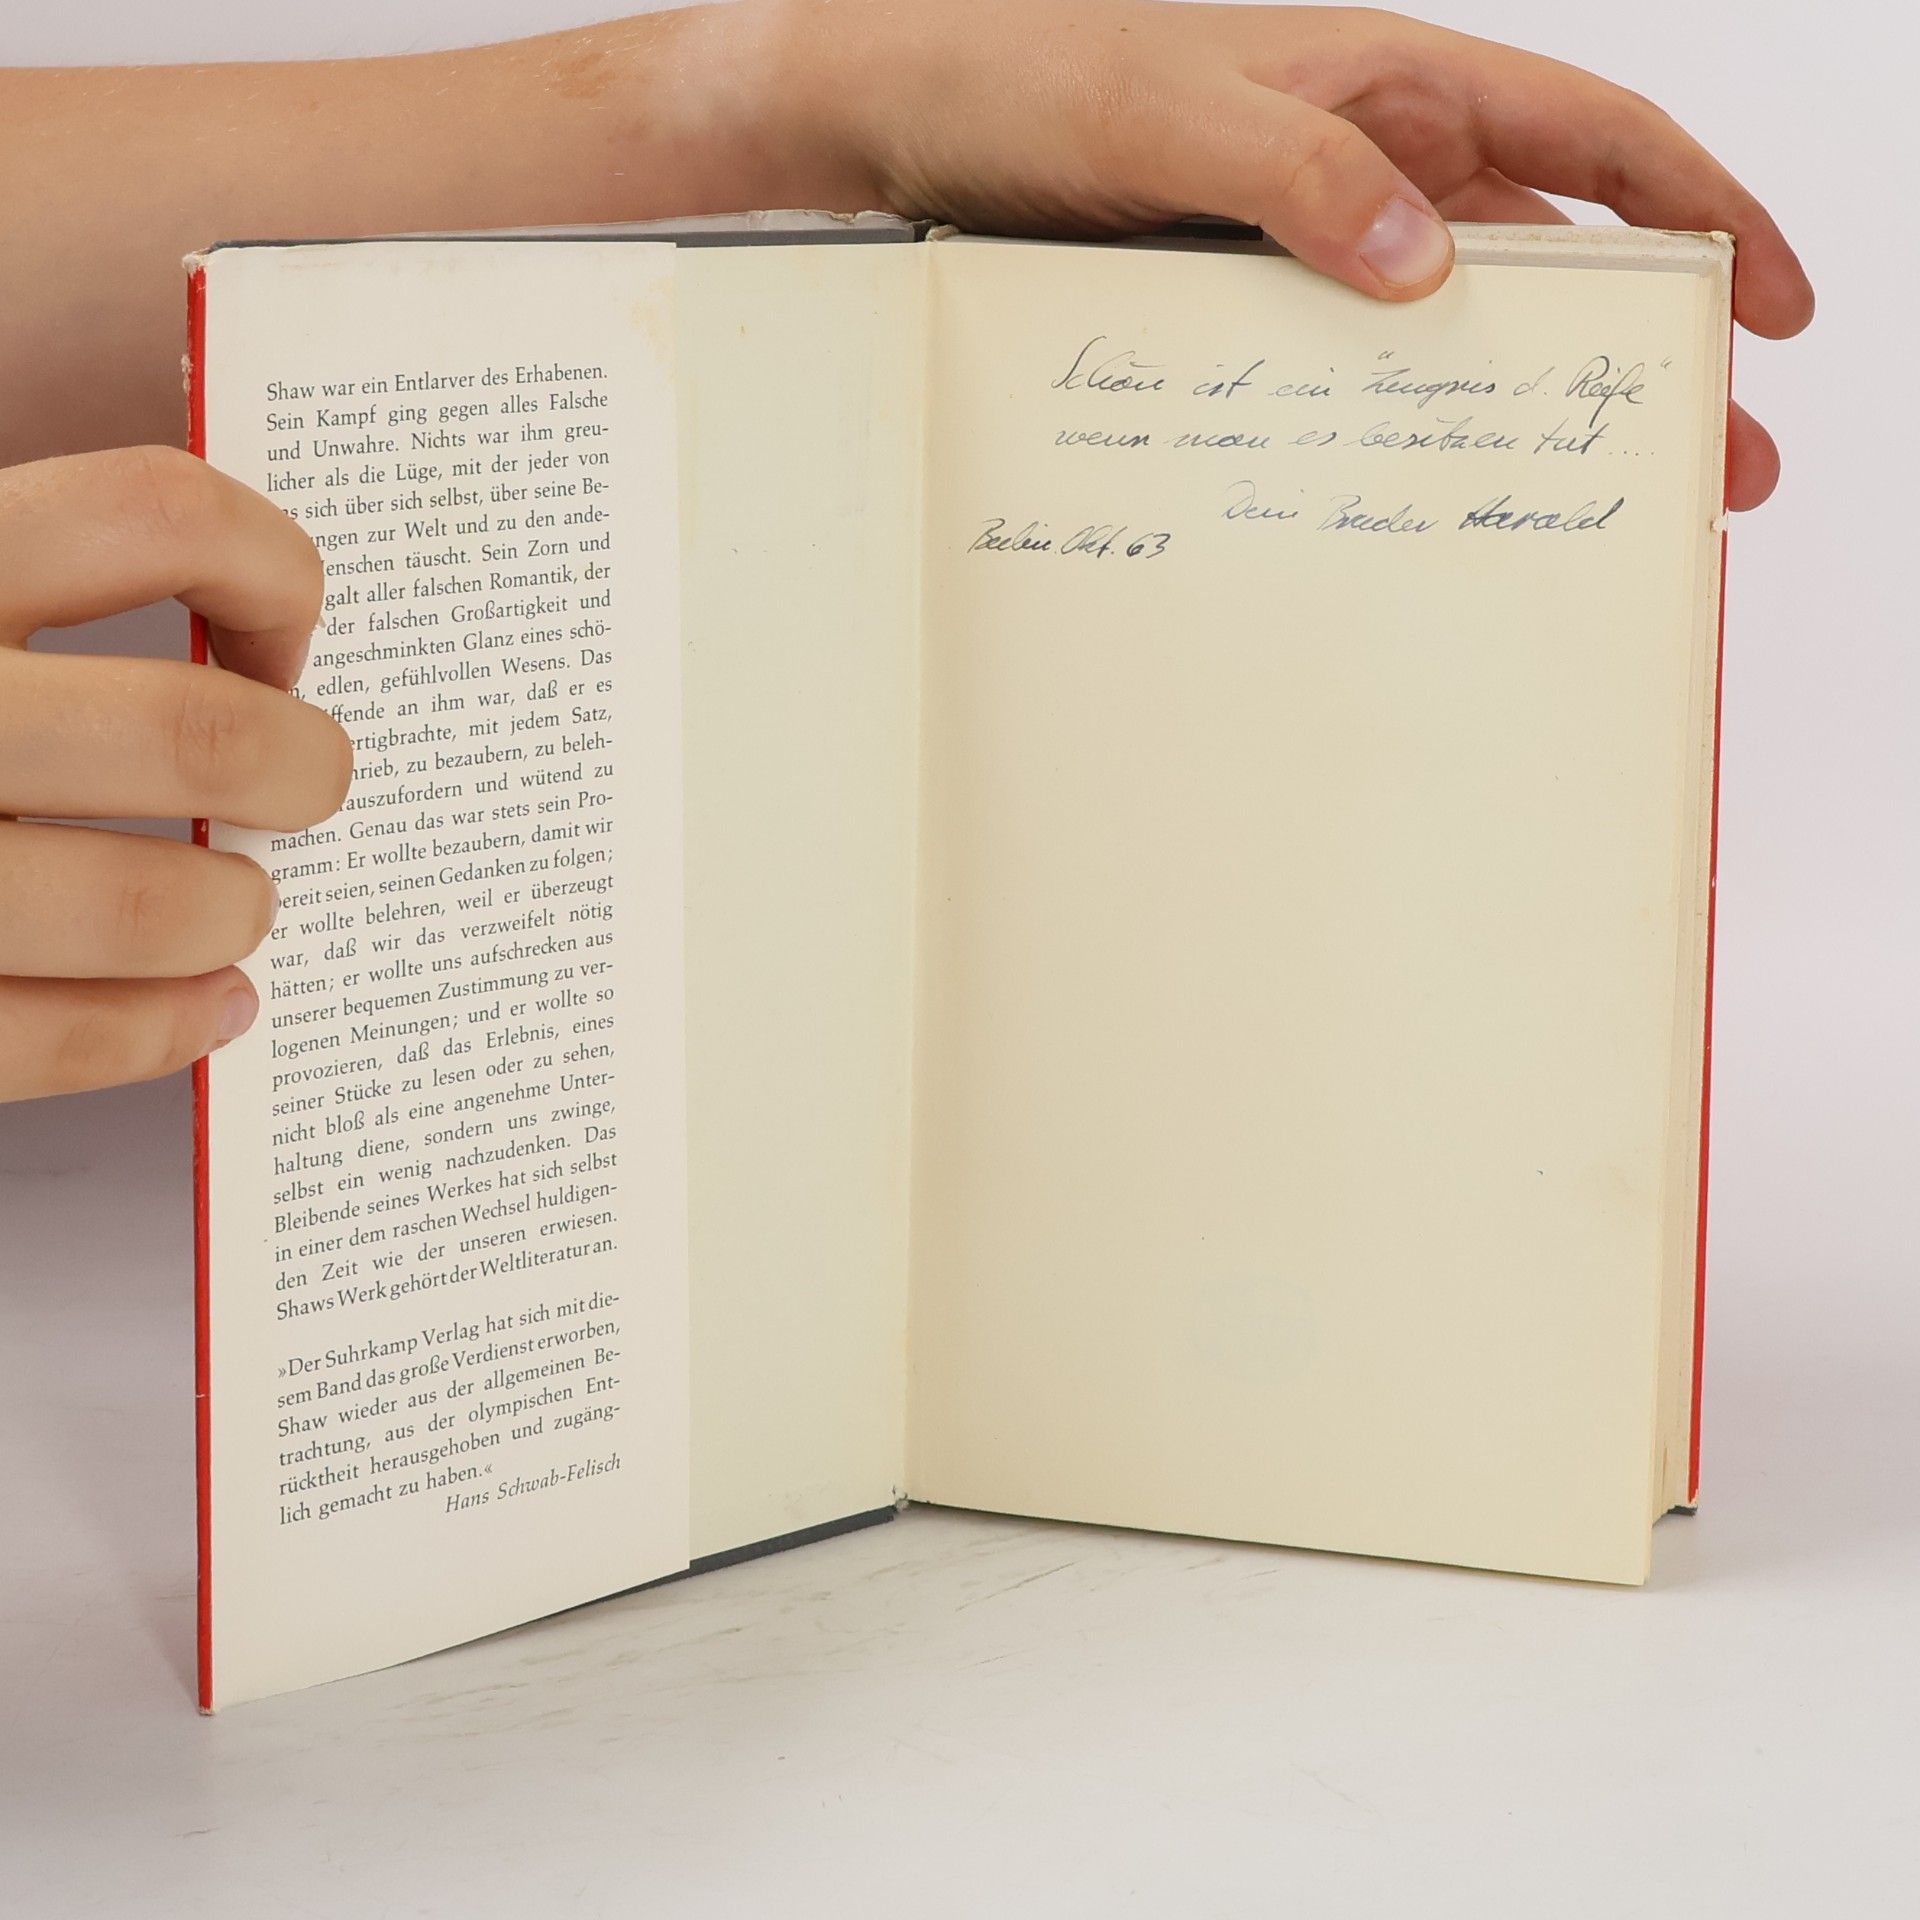 Shaw war ein Entlarver des Erhabenen.
Sein Kampf ging gegen alles Falsche
und Unwahre. Nichts war ihm greu-
licher als die Lüge, mit der jeder von
sich über sich selbst, über seine Be-
ngen zur Welt und zu den ande-
enschen täuscht. Sein Zorn und
galt aller falschen Romantik, der
der falschen Großartigkeit und
angeschminkten Glanz eines schö-
n, edlen, gefühlvollen Wesens. Das
ffende an ihm war, daß er es
ertigbrachte, mit jedem Satz,
hrieb, zu bezaubern, zu beleh-
rauszufordern und wütend zu
machen. Genau das war stets sein Pro-
gramm: Er wollte bezaubern, damit wir
bereit seien, seinen Gedanken zu folgen;
er wollte belehren, weil er überzeugt
war, daß wir das verzweifelt nötig
hätten; er wollte uns aufschrecken aus
unserer bequemen Zustimmung zu ver-
logenen Meinungen; und er wollte so
provozieren, daß das Erlebnis, eines
seiner Stücke zu lesen oder zu sehen,
nicht bloß als eine angenehme Unter-
haltung diene, sondern uns zwinge,
selbst ein wenig nachzudenken. Das
Bleibende seines Werkes hat sich selbst
in einer dem raschen Wechsel huldigen-
den Zeit wie der unseren erwiesen.
Shaws Werk gehört der Weltliteratur an.
»Der Suhrkamp Verlag hat sich mit die-
sem Band das große Verdienst erworben,
Shaw wieder aus der allgemeinen Be-
trachtung, aus der olympischen Ent-
rücktheit herausgehoben und zugäng-
lich gemacht zu haben.«
Hans Schwab-Felisch
Schön ist ein "Zeugnis d. Reife"
wenn man es besitzen tut ....
Dein Bruder Harald
Berlin. Okt. 63